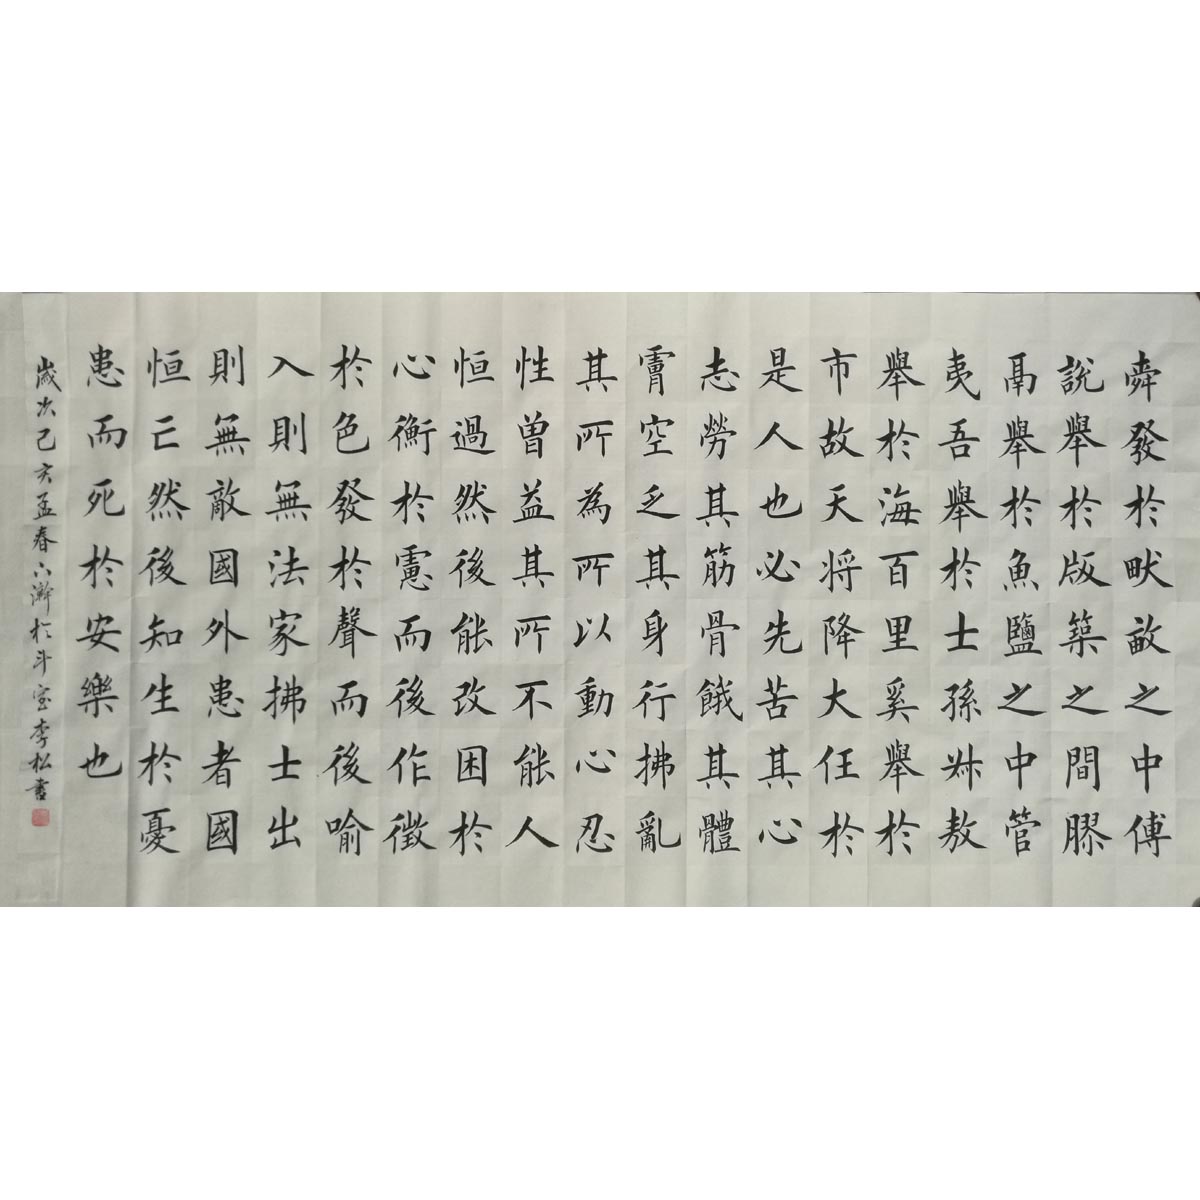 舜發於畎畝之中傅
說舉於版築之間膠
鬲舉於魚鹽之中管
夷吾舉於士孫叔敖
舉於海百里奚舉於
市故天將降大任於
是人也必先苦其心
志勞其筋骨餓其體
膚空乏其身行拂亂
其所為所以動心忍
性曾益其所不能人
恒過然後能改困於
心衡於慮而後作徵
於色發於聲而後喻
入則無法家拂士出
則無敵國外患者國
恒亡然後知生於憂
患而死於安樂也
歲次己亥孟春下澣於斗室李松書